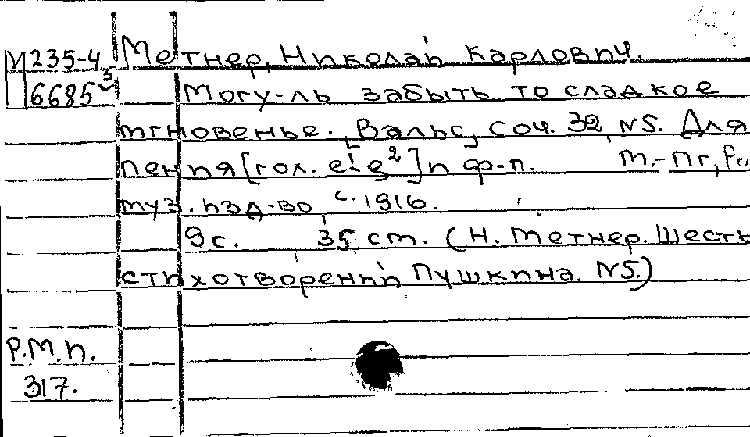 М 235-4 Метнер, Николай Карлович.
П 6685 Могу-ль забыть то сладкое
мгновенье. Вальс, соч. 32, N5. Для
пения [гол. e¹-g²] и ф-п. М.-Пг, Рос
муз. изд-во, с. 1916.
9 с. 35 см. (Н. Метнер. Шесть
стихотворений Пушкина. N5.)
Р.М.И.
317.